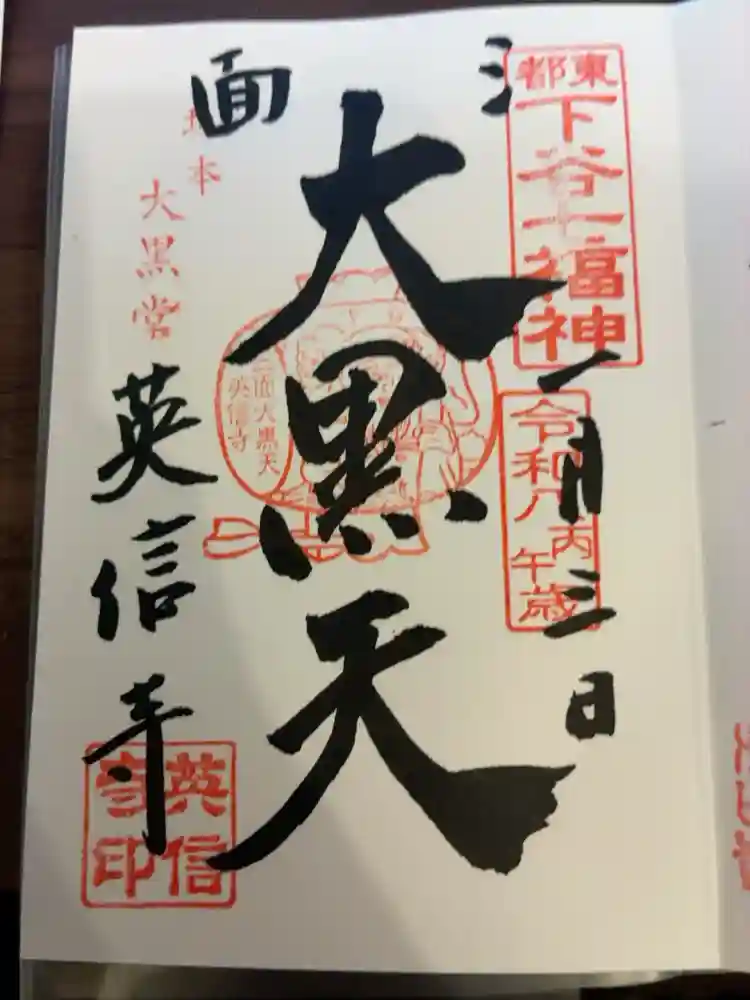 東都
下谷七福神
令和八
丙午歳
一月三日
三面
大黒天
三面大黒天
英信寺
坂本
大黒堂
英信寺
英信寺印